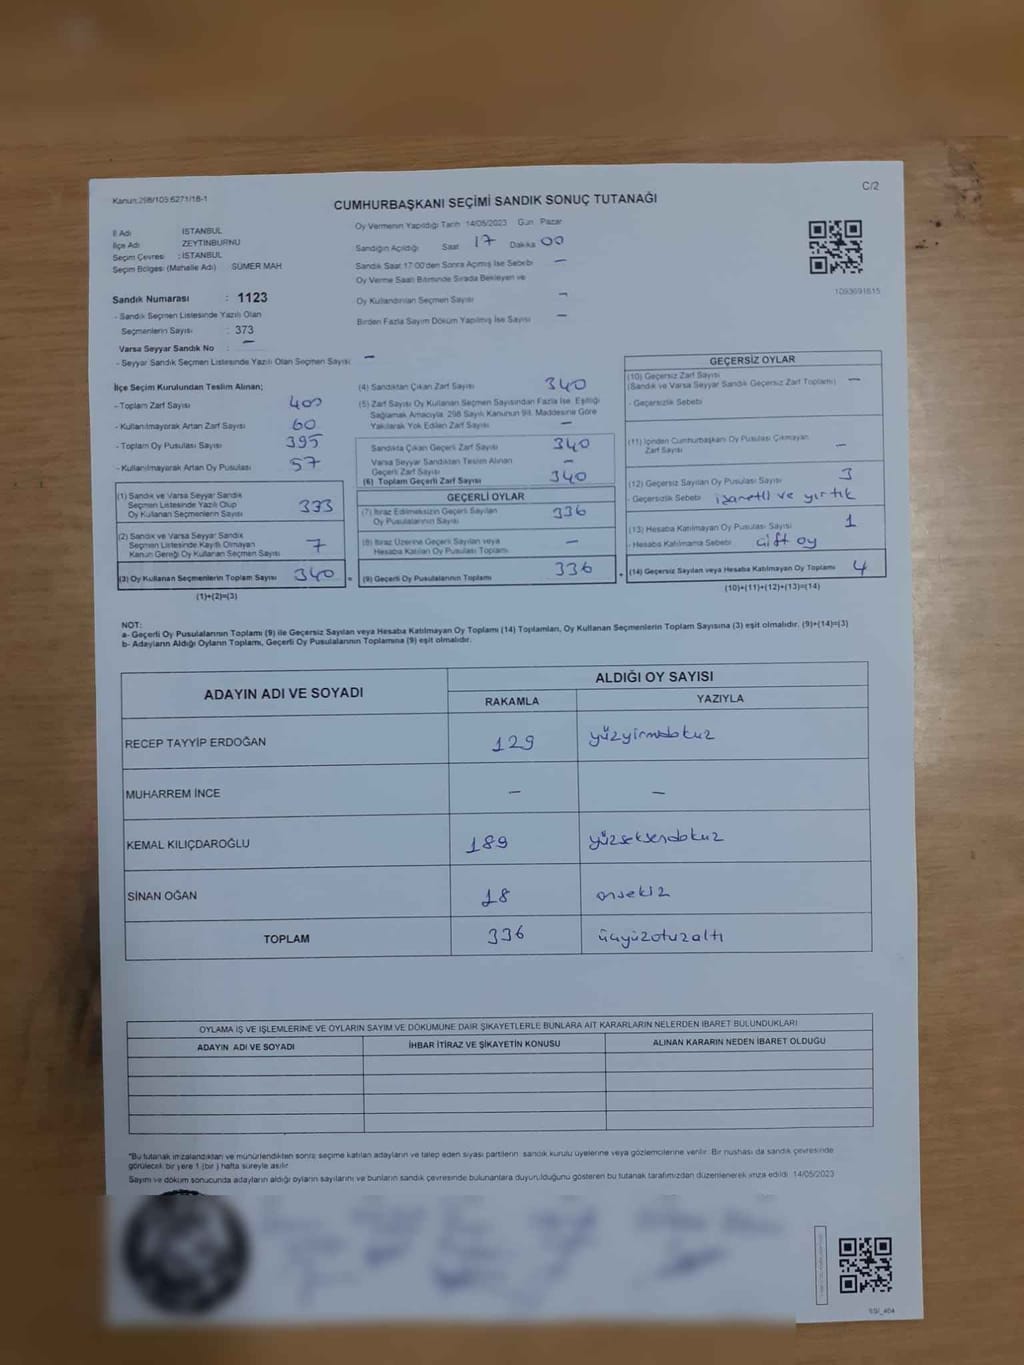 Kanun:298/105:6271/18-1
C/2
CUMHURBAŞKANI SEÇİMİ SANDIK SONUÇ TUTANAĞI
İl Adı İSTANBUL
İlçe Adı ZEYTİNBURNU
Seçim Çevresi : İSTANBUL
Seçim Bölgesi (Mahalle Adı) SÜMER MAH
Sandık Numarası : 1123
- Sandık Seçmen Listesinde Yazılı Olan
Seçmenlerin Sayısı : 373
Varsa Seyyar Sandık No : —
- Seyyar Sandık Seçmen Listesinde Yazılı Olan Seçmen Sayısı : —
Oy Vermenin Yapıldığı Tarih 14/05/2023 Gün Pazar
Sandığın Açıldığı Saat 17 Dakika 00
Sandık Saat 17:00'den Sonra Açılmış İse Sebebi —
Oy Verme Saati Bitiminde Sırada Bekleyen ve
Oy Kullandırılan Seçmen Sayısı —
Birden Fazla Sayım Döküm Yapılmış İse Sayısı —
1093691615
İlçe Seçim Kurulundan Teslim Alınan;
- Toplam Zarf Sayısı 400
- Kullanılmayarak Artan Zarf Sayısı 60
- Toplam Oy Pusulası Sayısı 395
- Kullanılmayarak Artan Oy Pusulası 57
(1) Sandık ve Varsa Seyyar Sandık
Seçmen Listesinde Yazılı Olup
Oy Kullanan Seçmenlerin Sayısı 333
(2) Sandık ve Varsa Seyyar Sandık
Seçmen Listesinde Kayıtlı Olmayan
Kanun Gereği Oy Kullanan Seçmen Sayısı 7
(3) Oy Kullanan Seçmenlerin Toplam Sayısı 340
(1)+(2)=(3)
(4) Sandıktan Çıkan Zarf Sayısı 340
(5) Zarf Sayısı Oy Kullanan Seçmen Sayısından Fazla İse, Eşitliği
Sağlamak Amacıyla, 298 Sayılı Kanunun 98. Maddesine Göre
Yakılarak Yok Edilen Zarf Sayısı —
Sandıkta Çıkan Geçerli Zarf Sayısı 340
Varsa Seyyar Sandıktan Teslim Alınan
Geçerli Zarf Sayısı —
(6) Toplam Geçerli Zarf Sayısı 340
GEÇERLİ OYLAR
(7) İtiraz Edilmeksizin Geçerli Sayılan
Oy Pusulalarının Sayısı 336
(8) İtiraz Üzerine Geçerli Sayılan veya
Hesaba Katılan Oy Pusulası Toplamı —
= (9) Geçerli Oy Pusulalarının Toplamı 336
GEÇERSİZ OYLAR
(10) Geçersiz Zarf Sayısı
(Sandık ve Varsa Seyyar Sandık Geçersiz Zarf Toplamı) —
- Geçersizlik Sebebi
(11) İçinden Cumhurbaşkanı Oy Pusulası Çıkmayan
Zarf Sayısı —
(12) Geçersiz Sayılan Oy Pusulası Sayısı 3
- Geçersizlik Sebebi işaretli ve yırtık
(13) Hesaba Katılmayan Oy Pusulası Sayısı 1
- Hesaba Katılmama Sebebi çift oy
+ (14) Geçersiz Sayılan veya Hesaba Katılmayan Oy Toplamı 4
(10)+(11)+(12)+(13)=(14)
NOT:
a- Geçerli Oy Pusulalarının Toplamı (9) ile Geçersiz Sayılan veya Hesaba Katılmayan Oy Toplamı (14) Toplamları, Oy Kullanan Seçmenlerin Toplam Sayısına (3) eşit olmalıdır. (9)+(14)=(3)
b- Adayların Aldığı Oyların Toplamı, Geçerli Oy Pusulalarının Toplamına (9) eşit olmalıdır.
ADAYIN ADI VE SOYADI
ALDIĞI OY SAYISI
RAKAMLA YAZIYLA
RECEP TAYYİP ERDOĞAN 129 yüzyirmidokuz
MUHARREM İNCE — —
KEMAL KILIÇDAROĞLU 189 yüzseksendokuz
SİNAN OĞAN 18 onsekiz
TOPLAM 336 üçyüzotuzaltı
OYLAMA İŞ VE İŞLEMLERİNE VE OYLARIN SAYIM VE DÖKÜMÜNE DAİR ŞİKAYETLERLE BUNLARA AİT KARARLARIN NELERDEN İBARET BULUNDUKLARI
ADAYIN ADI VE SOYADI İHBAR İTİRAZ VE ŞİKAYETİN KONUSU ALINAN KARARIN NEDEN İBARET OLDUĞU
"Bu tutanak imzalandıktan ve mühürlendikten sonra seçime katılan adayların ve talep eden siyasi partilerin sandık kurulu üyelerine veya gözlemcilerine verilir. Bir nüshası da sandık çevresinde
görülecek bir yere 1 (bir ) hafta süreyle asılır.
Sayım ve döküm sonucunda adayların aldığı oyların sayılarını ve bunların sandık çevresinde bulunanlara duyurulduğunu gösteren bu tutanak tarafımızdan düzenlenerek imza edildi. 14/05/2023